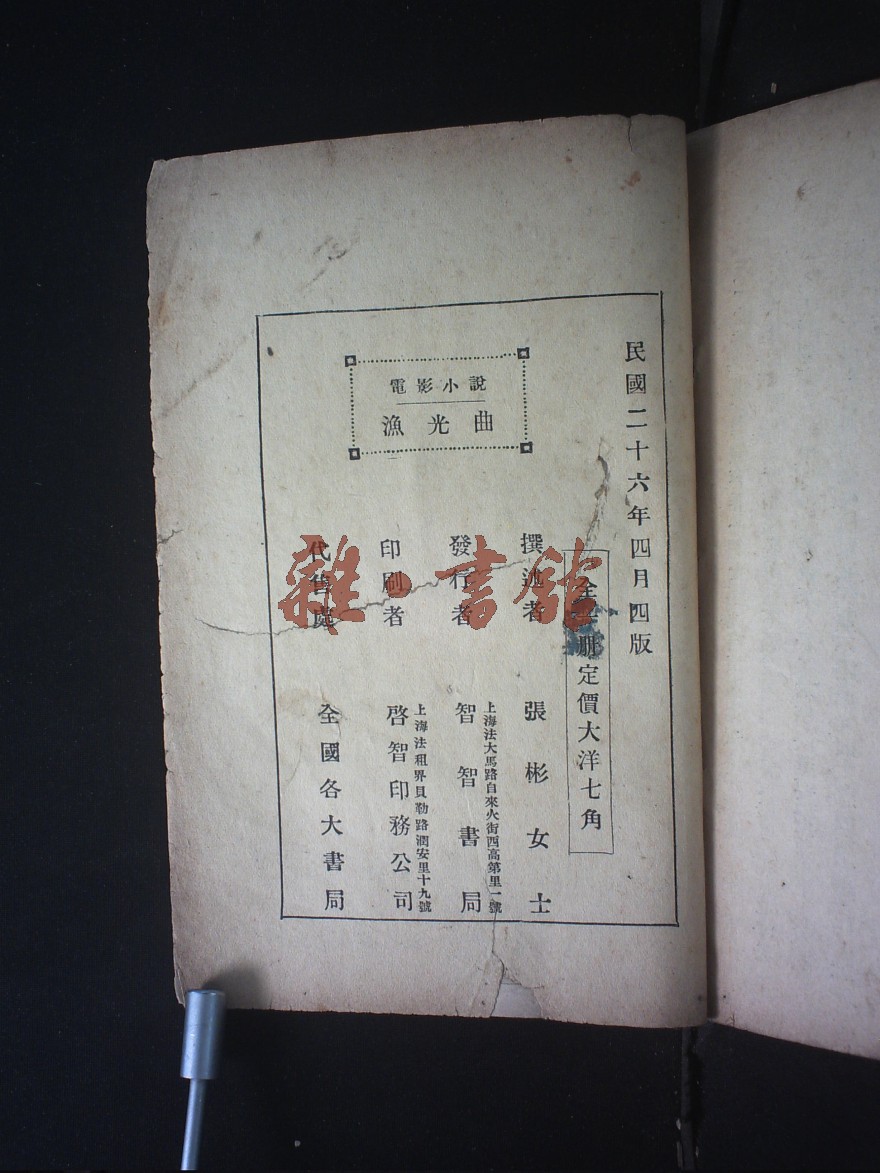 民國二十六年四月四版
全一冊定價大洋七角
電影小說
漁光曲
撰述者 張彬女士
發行者 智智書局
上海法大馬路自來火街西高第里一號
印刷者 啓智印務公司
上海法租界貝勒路潤安里十九號
代售處 全國各大書局
雜·書館